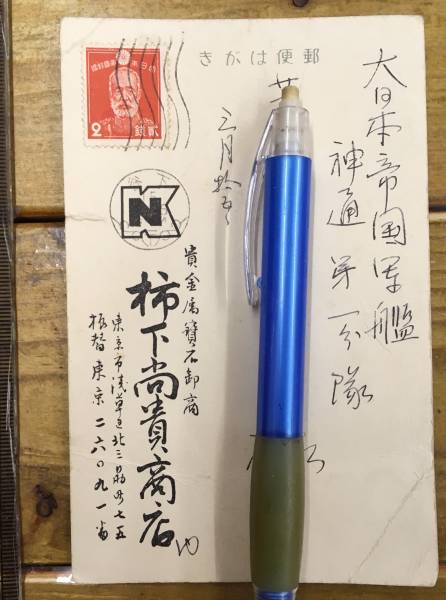 郵便はがき
大日本帝国軍艦
神通第一分隊
三月拾五
大日本帝國郵便
2
貳錢
N
貴金属寶石卸商
柿下尚貴商店内
東京市浅草区北三筋町七五
振替東京二六〇九一番